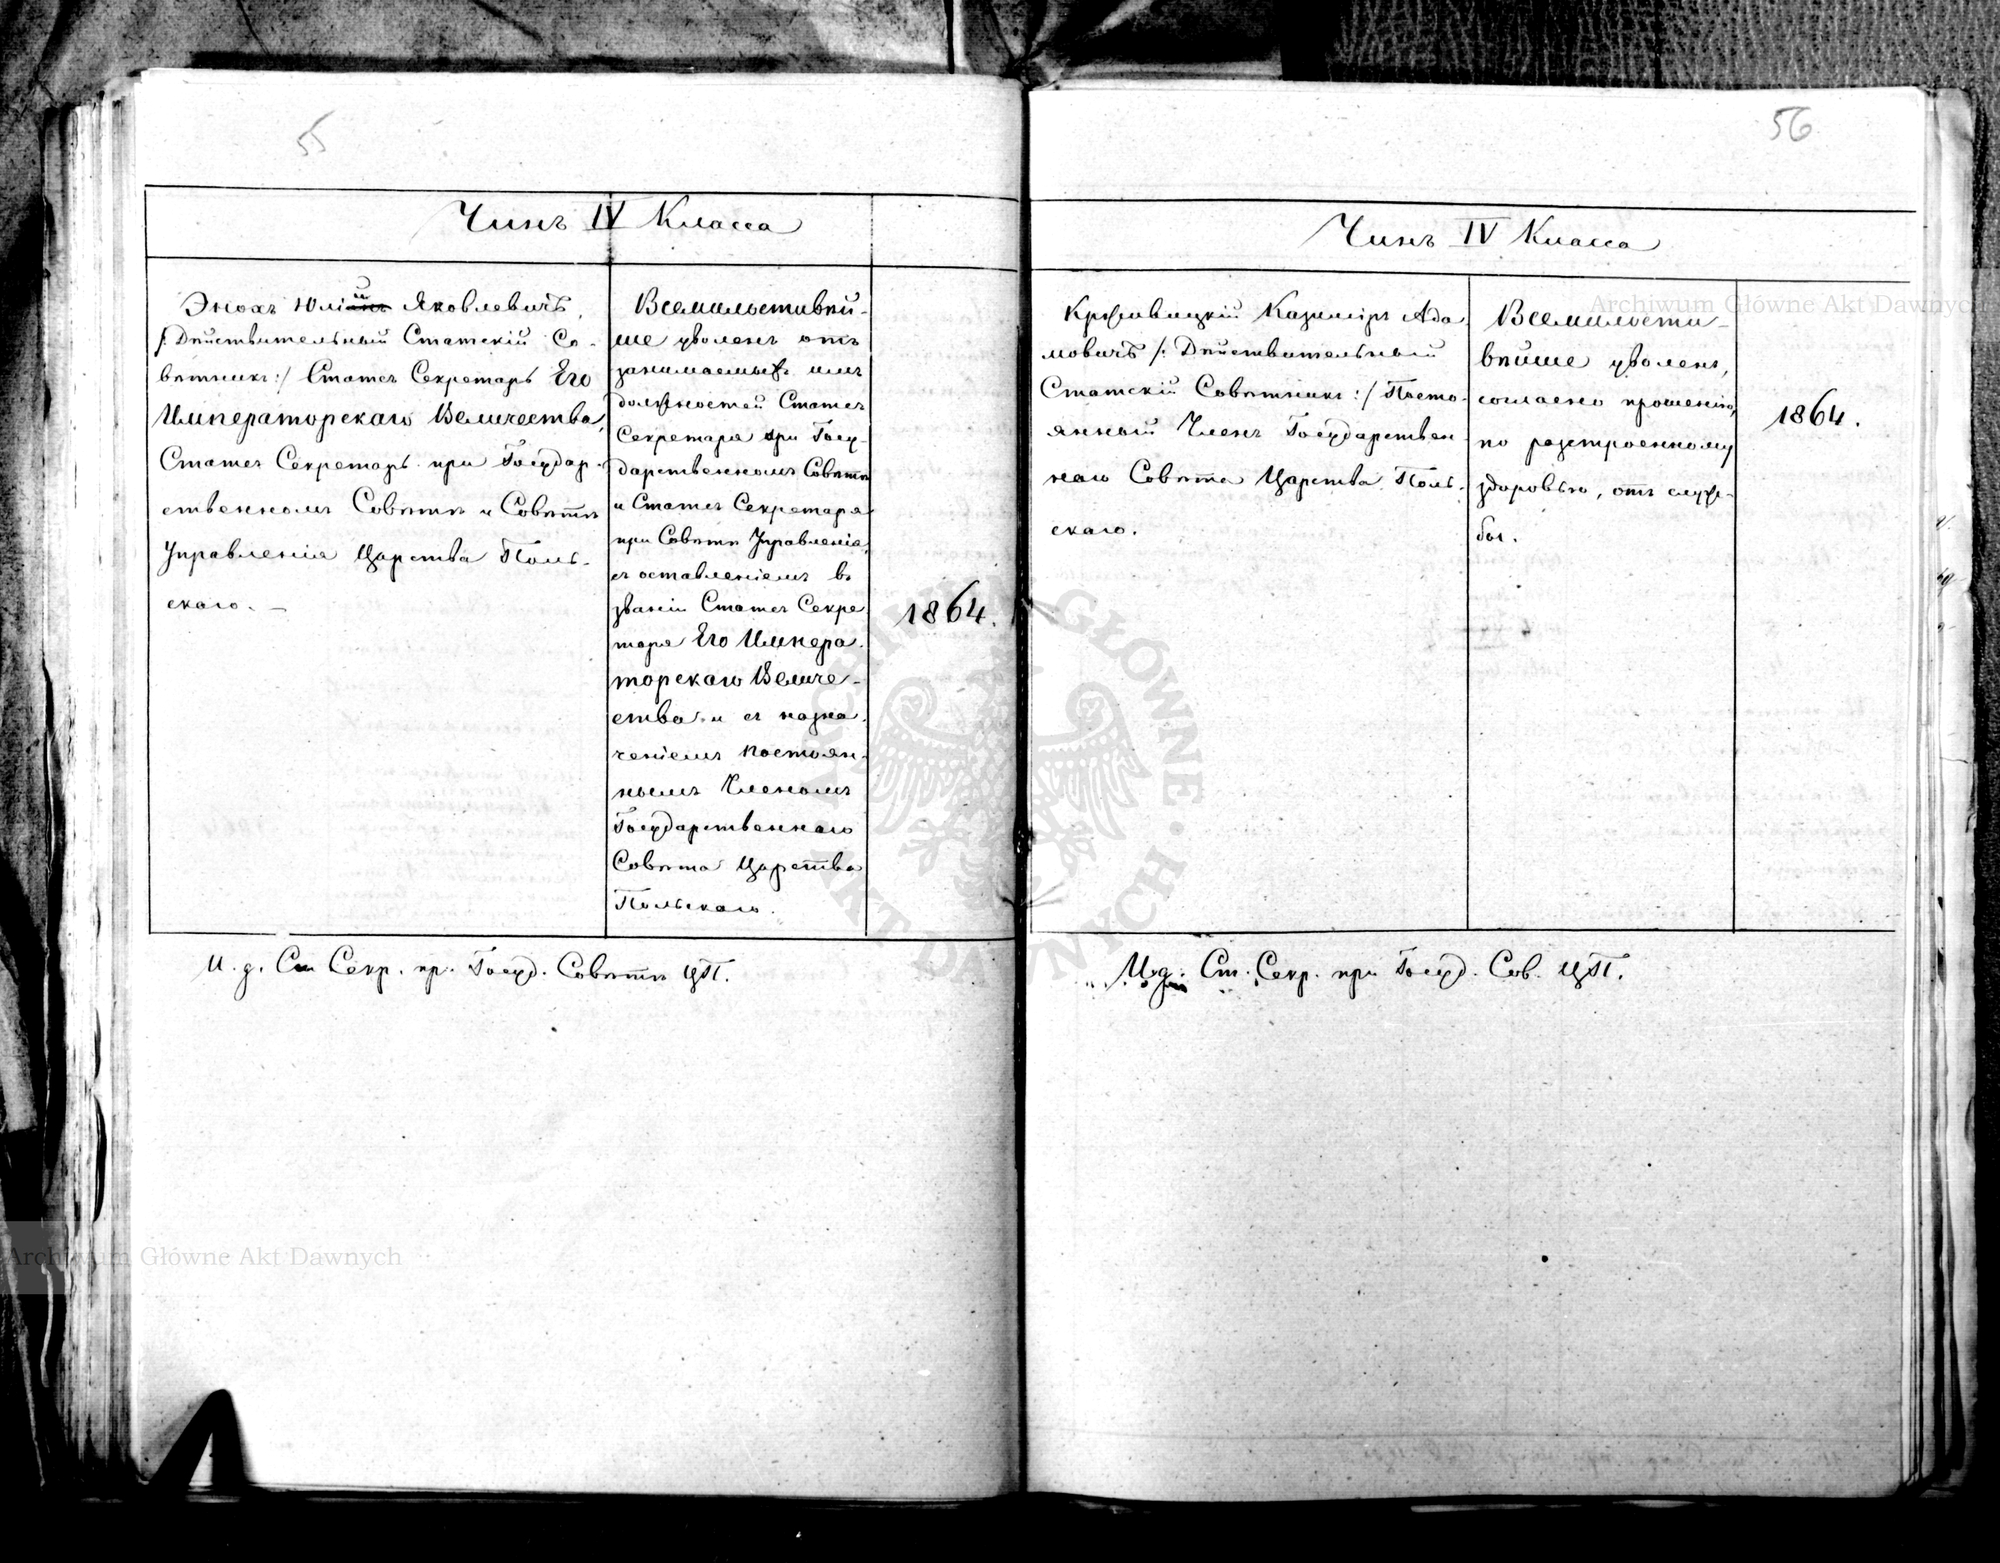 55
Чинъ IV Класса
Энохъ Юлій Яковлевичъ,
/: Дѣйствительный Статскій Со-
вѣтникъ :/ Статсъ Секретарь Его
Императорскаго Величества,
Статсъ Секретарь при Государ-
ственномъ Совѣтѣ и Совѣтѣ
Управленія Царства Поль-
скаго. —
Всемилостивѣй-
ше уволенъ отъ
занимаемыхъ имъ
должностей Статсъ
Секретаря при Госу-
дарственномъ Совѣтѣ
и Статсъ Секретаря
при Совѣтѣ Управленія,
съ оставленіемъ въ
званіи Статсъ Секре-
таря Его Импера-
торскаго Величе-
ства и съ назна-
ченіемъ Постоян-
нымъ Членомъ
Государственнаго
Совѣта Царства
Польскаго.
1864.
И. д. Ст Секр. пр. Госуд. Совѣтѣ ЦП.
56
Чинъ IV Класса
Крживицкій Казиміръ Ада-
мовичъ /: Дѣйствительный
Статскій Совѣтникъ :/ Посто-
янный Членъ Государствен-
наго Совѣта Царства Поль-
скаго.
Всемилости-
вѣйше уволенъ,
согласно прошенію,
по разстроенному
здоровью, отъ служ-
бы.
1864.
И. д. Ст. Секр. при Госуд. Сов. ЦП.
Archiwum Główne Akt Dawnych
Archiwum Główne Akt Dawnych
ARCHIWUM GŁÓWNE AKT DAWNYCH